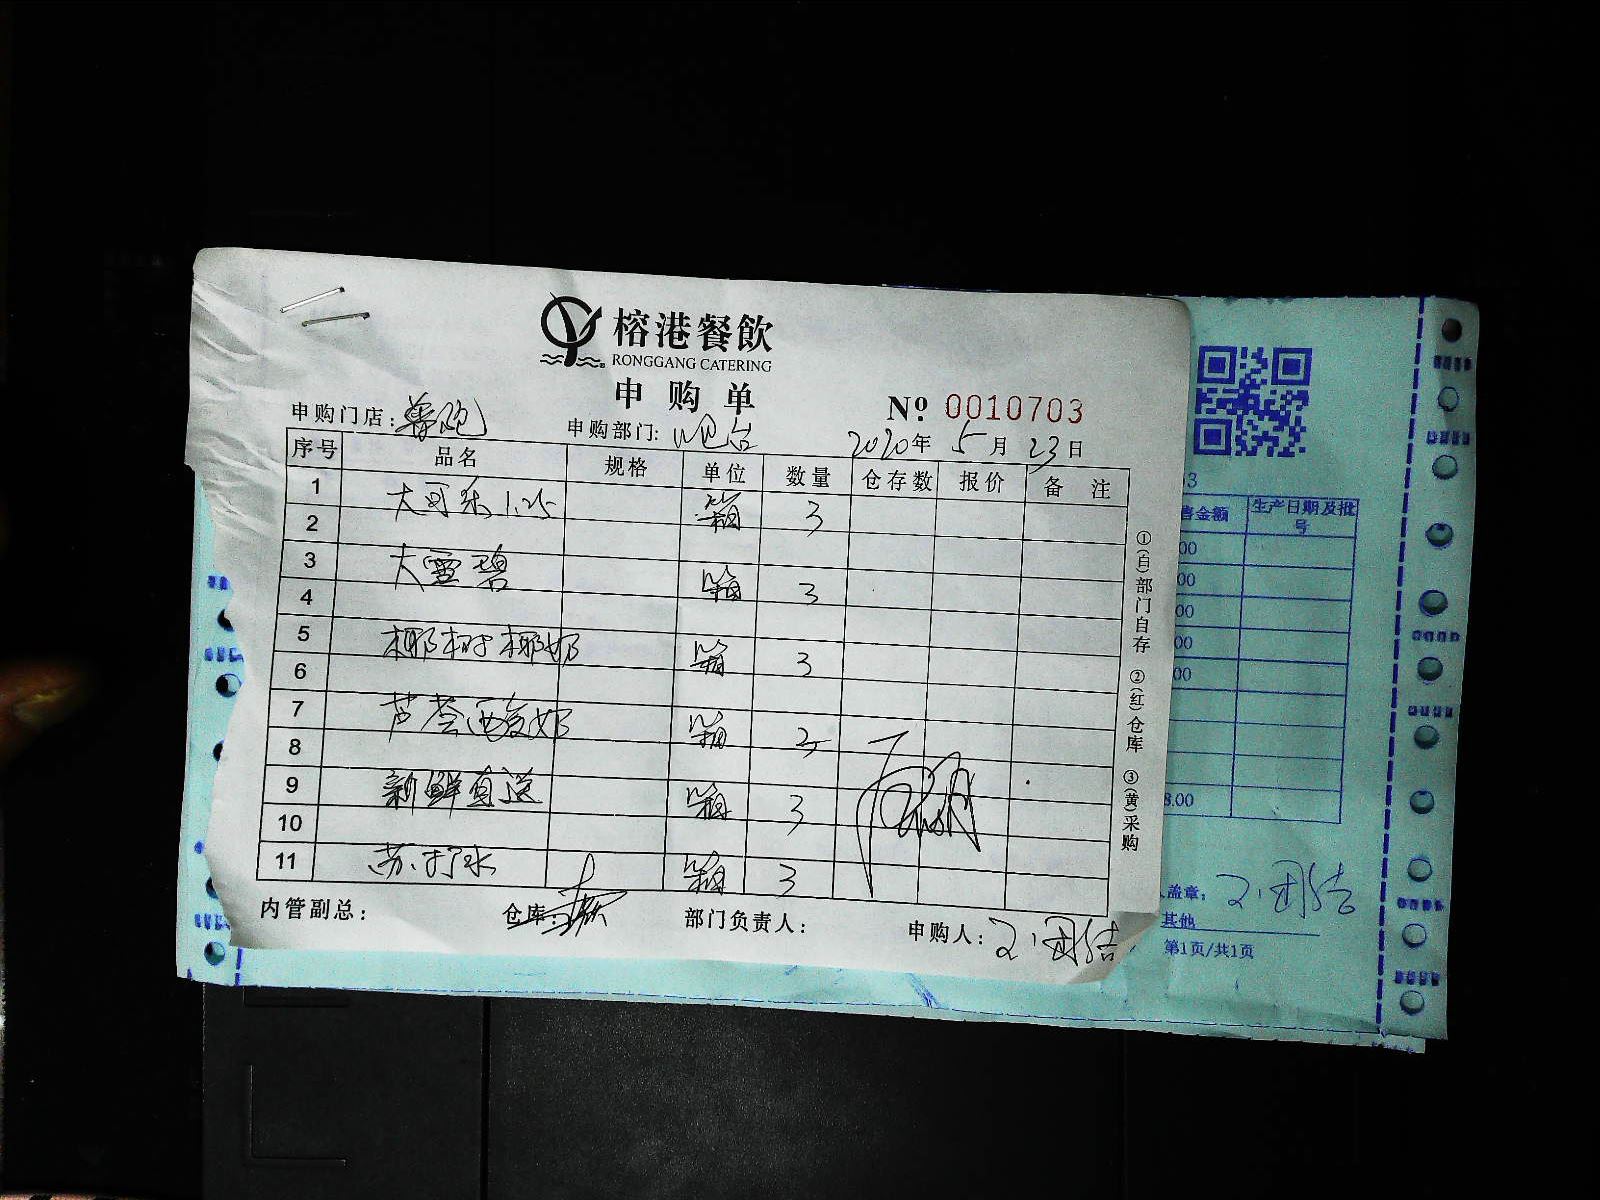 榕港餐飲
RONGGANG CATERING
申购单
№ 0010703
申购门店:
申购部门: 吧台
2020年 5月 23日
序号 品名 规格 单位 数量 仓存数 报价 备注
1 大可乐1.25 箱 3
2
3 大雪碧 箱 3
4
5 椰树椰奶 箱 3
6
7 芦荟酸奶 箱
8
9 新鲜直送 箱 3
10
11 苏打水 箱 3
内管副总:
仓库:
部门负责人:
申购人: 王团结
①(白)部门自存 ②(红)仓库 ③(黄)采购
3
售金额 生产日期及批号
00
00
00
00
00
8.00
盖章: 王团结
其他
第1页/共1页